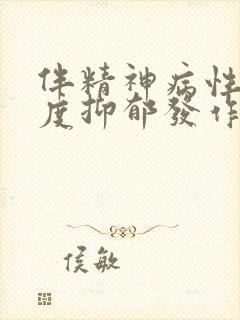 伴精神病性
度抑郁發作
侯敏